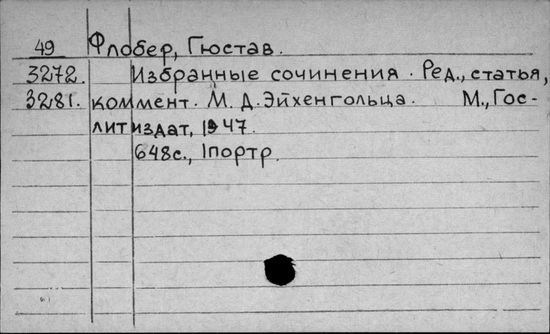 49 Флобер, Гюстав.
3272. Избранные сочинения. Ред., статья,
3281. коммент. М. Д. Эйхенгольца. М., Гос-
литиздат, 1947.
648с., 1портр.